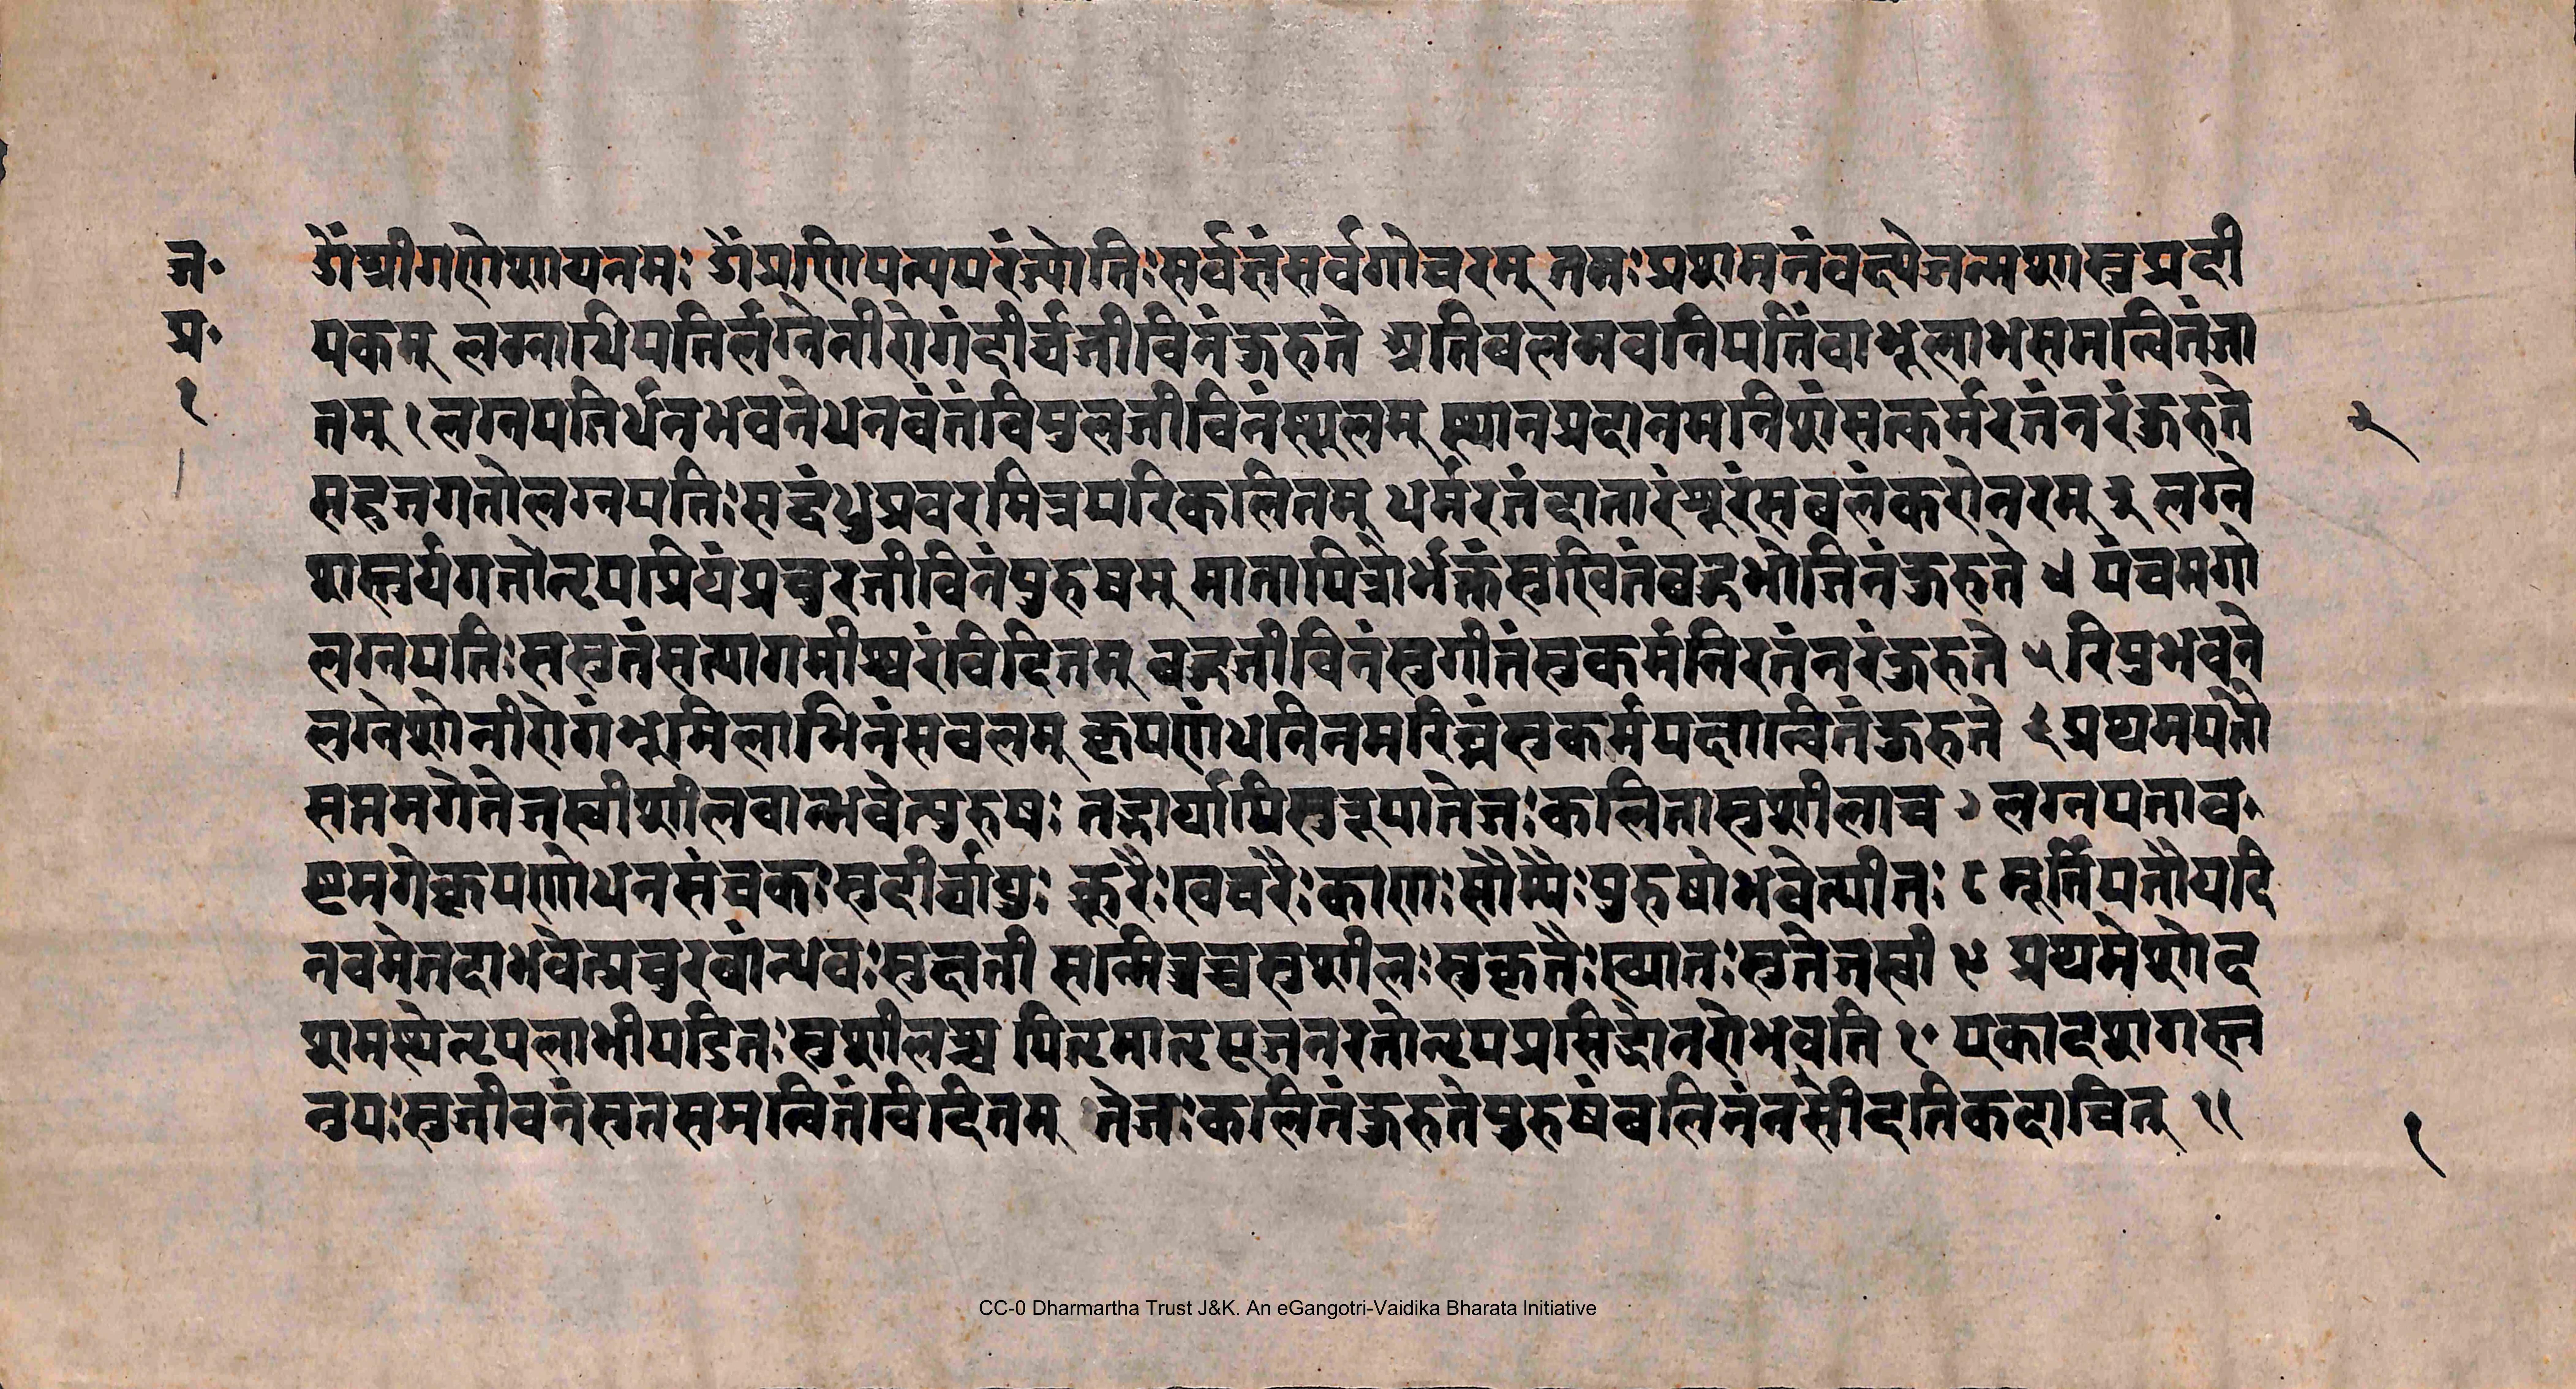 ज॰
प्र॰
१
ॐश्रीगणेशायनमः ॐप्रणिपत्यपरंज्योतिःसर्वज्ञंसर्वगोचरम् ततःप्रशमनंवक्ष्येजन्मशास्त्रप्रदी
पकम् लग्नाधिपतिर्लग्नेनीरोगंदीर्घजीविनंकुरुते अतिबलमवनिपतिंवाभूलाभसमन्वितंजा
तम् १ लग्नपतिर्धनभवनेधनवंतंविपुलजीविनंस्थूलम् स्थानप्रदानमनिशंसत्कर्मरतंनरंकुरुते
२
सहजगतोलग्नपतिःसद्बंधुप्रवरमित्रपरिकलितम् धर्मरतंदातारंशूरंसबलंकरोनरम् ३ लग्ने
शस्तुर्यगतोनृपप्रियंप्रचुरजीविनंपुरुषम् मातापित्रोर्भक्तंसुखितंबहुभोजिनंकुरुते ४ पंचमगो
लग्नपतिःससुतंसत्यागमीश्वरंविदितम् बहुजीविनंसुगीतंसुकर्मनिरतंनरंकुरुते ५ रिपुभवने
लग्नेशोनीरोगंभूमिलाभिनंसबलम् कृपणंधनिनमरिघ्नंसुकर्मपक्षान्वितंकुरुते ६ प्रथमपतौ
सप्तमगेतेजस्वीशीलवान्भवेत्पुरुषः तद्भार्यापिसुरूपातेजःकलितासुशीलाच ७ लग्नपताव
ष्टमगेकृपणोधनसंचकःसुदीर्घायुः क्रूरैःखचरैःकाणःसौम्यैःपुरुषोभवेत्पीतः ८ मूर्तिपतौयदि
नवमेतदाभवेत्प्रचुरबान्धवःसुज्ञानी सन्मित्रश्चसुशीलःसुकृतैःख्यातःसुतेजस्वी ९ प्रथमेशेद
शमस्थेनृपलाभीपंडितःसुशीलश्च पितृमातृपूजनरतोनृपप्रसिद्धोनरोभवति १० एकादशगस्त
नुपःसुजीवनंसुतसमन्वितंविदितम् तेजःकलितंकुरुतेपुरुषंबलिनंनसीदतिकदाचित् ११
१
CC-0 Dharmartha Trust J&K. An eGangotri-Vaidika Bharata Initiative